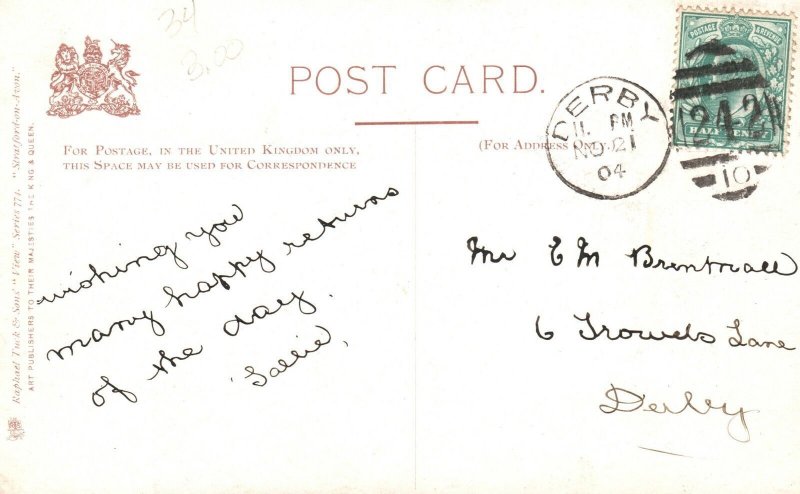 34
3.00
POST CARD.
FOR POSTAGE, IN THE UNITED KINGDOM ONLY,
THIS SPACE MAY BE USED FOR CORRESPONDENCE
(FOR ADDRESS ONLY.)
POSTAGE & REVENUE
HALF PENNY
DERBY
11. PM
NO 21
04
242
10
wishing you
many happy returns
of the day.
Sallie.
Mr E M Brentnall
6 Trowels Lane
Derby
Raphael Tuck & Sons' "View" Series 774. "Stratford-on-Avon."
ART PUBLISHERS TO THEIR MAJESTIES THE KING & QUEEN.